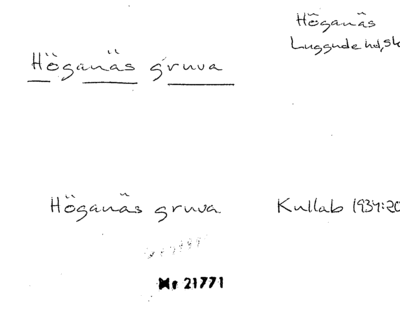 Höganäs
Luggude hd, Sk
Höganäs gruva
Höganäs gruva
Kullab 1934:20
Nr 21771